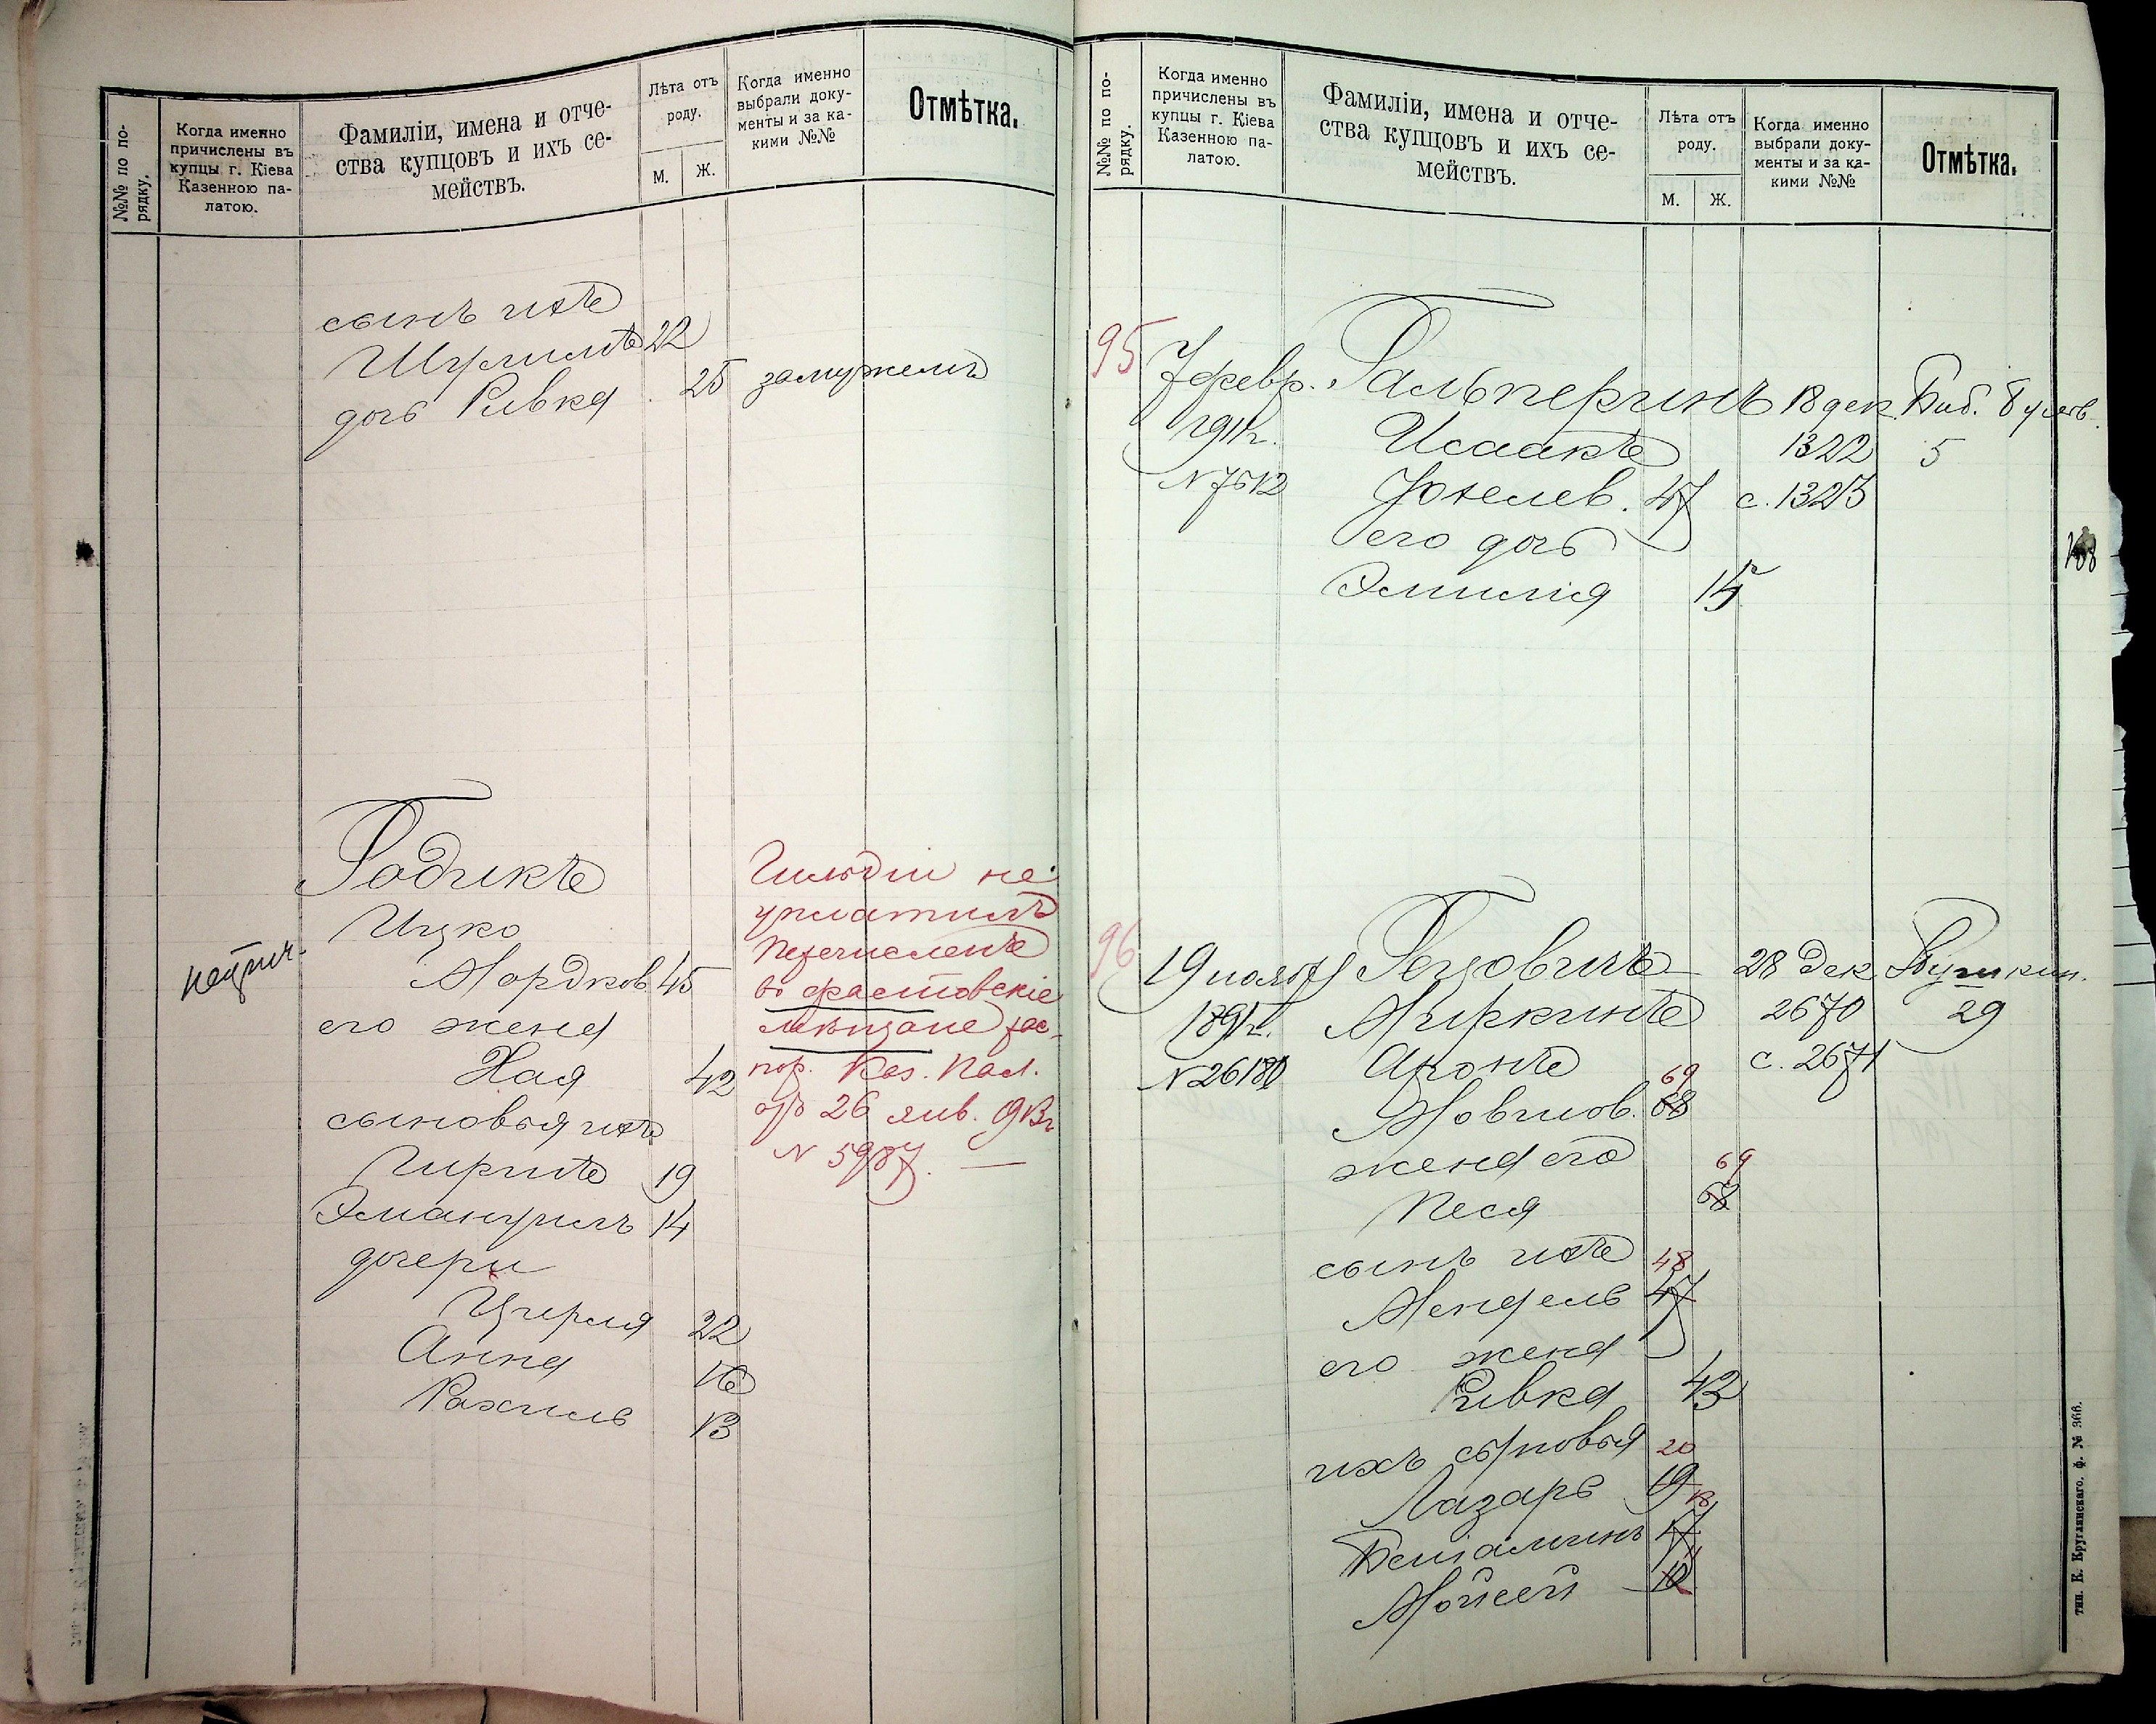 №№ по по-
рядку.
Когда именно
причислены въ
купцы г. Кіева
Казенною па-
латою.
Фамиліи, имена и отче-
ства купцовъ и ихъ се-
мействъ.
Лѣта отъ
роду.
М.
Ж.
Когда именно
выбрали доку-
менты и за ка-
кими №№
Отмѣтка.
сынъ ихъ
Шулимъ 22
дочь Ривка 25 замужемъ
Годикъ
Ицко
Мордков. 45
его жена
Хая 42
сыновья ихъ
Гиршъ 19
Эмануилъ 14
дочери
Цирля 22
Анна 16
Рахиль 13
Гильдіи не
уплатилъ
Перечисленъ
въ фастовскіе
мѣщане рас-
пор. Каз. Пал.
отъ 26 янв. 913г.
N 5987.
№№ по по-
рядку.
Когда именно
причислены въ
купцы г. Кіева
Казенною па-
латою.
Фамиліи, имена и отче-
ства купцовъ и ихъ се-
мействъ.
Лѣта отъ
роду.
М.
Ж.
Когда именно
выбрали доку-
менты и за ка-
кими №№
Отмѣтка.
95 7 февр. Гальперинъ 18 дек. Биб. бульв.
1911г. Исаакъ 1322 5
N 7512 Іоселев. 47 с. 1323
его дочь
Эмилія 15
96 19 іюля Гецовичъ 28 дек. Пушкин.
1891г. Миркинъ 2670 29
N 26180 Аронъ с. 2671
Мовшов. 68 69
жена его
Песя 68 69
сынъ ихъ 48
Мендель 47
его жена
Ривка 43
ихъ сыновья 20
Лазарь 19
Веніаминъ 17 18
Мойсей
тип. К. Круглянскаго, ф. № 366.